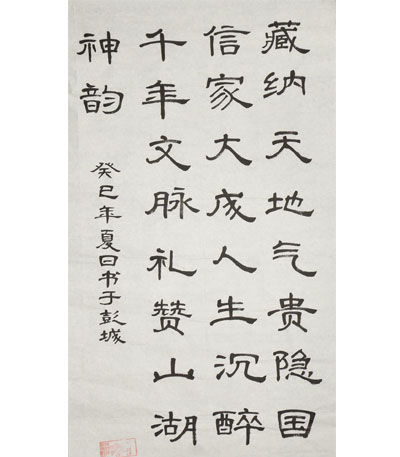 藏纳天地气贵隐国
信家大成人生沉醉
千年文脉礼赞山湖
神韵
癸巳年夏日书于彭城